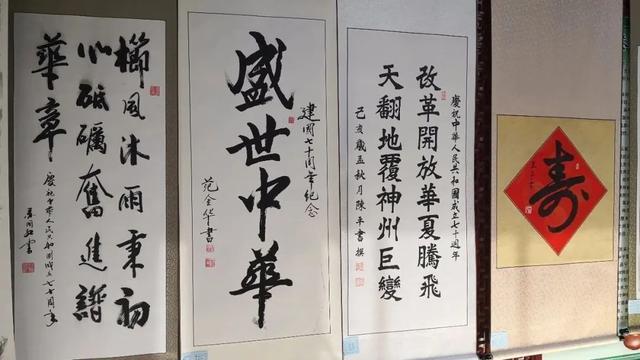 櫛風沐雨秉初
心砥礪奮進譜
華章
慶祝中华人民共和國成立七十周年
建國七十周年纪念
盛世中華
范金华書
慶祝中華人民共和國成立七十週年
改革開放華夏騰飛
天翻地覆神州巨變
己亥歲孟秋月陳平書撰
寿